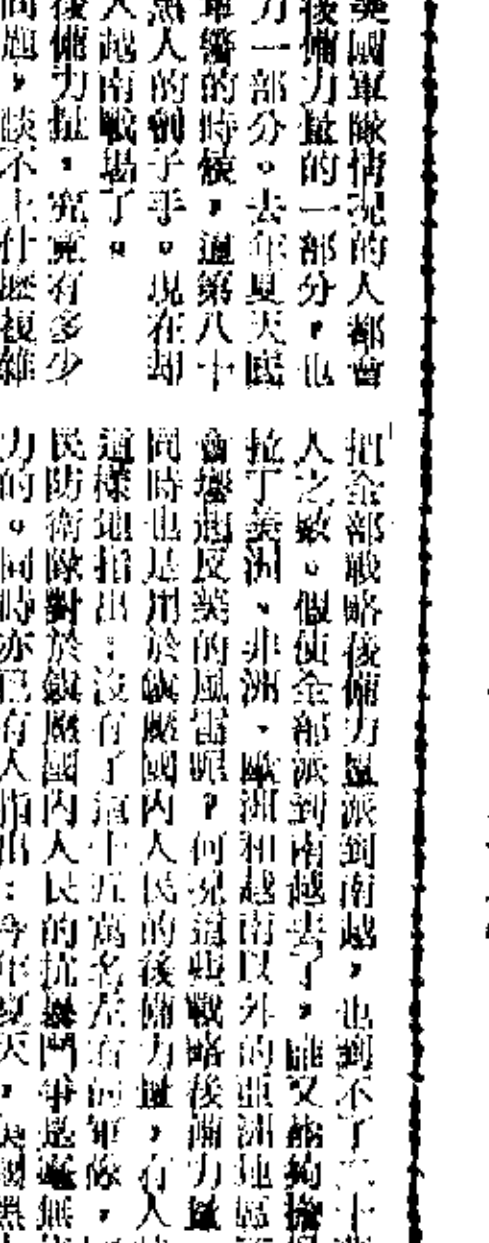 美國軍隊情況的人都會
後備力量的一部分，也
力一部分。去年夏天民
軍警的時候，這第八十
黑人的劊子手。現在却
入越南戰場了。
後備力量，究竟有多少
問題，談不上什麼複雜
把全部戰略後備力量派到南越，也到不了二十
人之數。假使全部派到南越去了，誰又能夠擔
拉丁美洲、非洲、歐洲和越南以外的亞洲地區
會響起反美的風雷呢？何況這些戰略後備力量
同時也是用於鎮壓國內人民的後備力量，有人
這樣地指出：沒有了這十五萬名左右的軍隊，
民防衛隊對於鎮壓國內人民的抗暴鬥爭是無
力的。同時亦已有人指出：今年夏天，美國黑